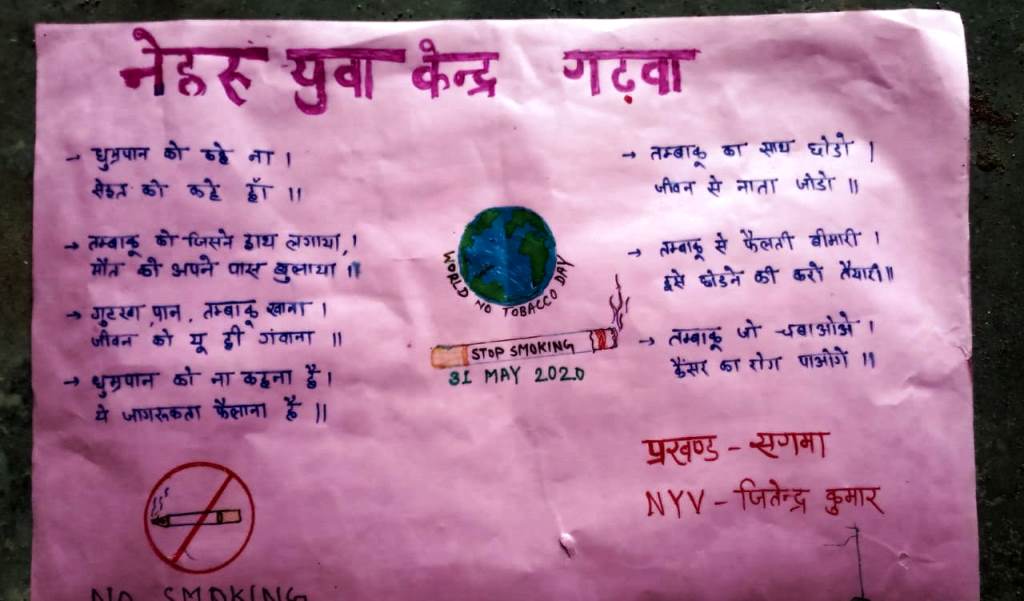 नेहरू युवा केन्द्र गढ़वा
→ धुम्रपान को कहे ना ।
सेहत को कहे हाँ ॥
→ तम्बाकू को जिसने हाथ लगाया,।
मौत को अपने पास बुलाया ॥
→ गुटखा,पान, तम्बाकू खाना ।
जीवन को यू ही गंवाना ॥
→ धुम्रपान को ना कहना है।
ये जागरूकता फैलाना है ॥
WORLD NO TOBACCO DAY
STOP SMOKING
31 MAY 2020
→ तम्बाकू का साथ छोडो ।
जीवन से नाता जोडो ॥
→ तम्बाकू से फैलती बीमारी ।
इसे छोडने की करो तैयारी॥
→ तम्बाकू जो चबाओओ ।
कैंसर का रोग पाओगे ॥
प्रखण्ड - सगमा
NYV - जितेन्द्र कुमार
NO SMOKING